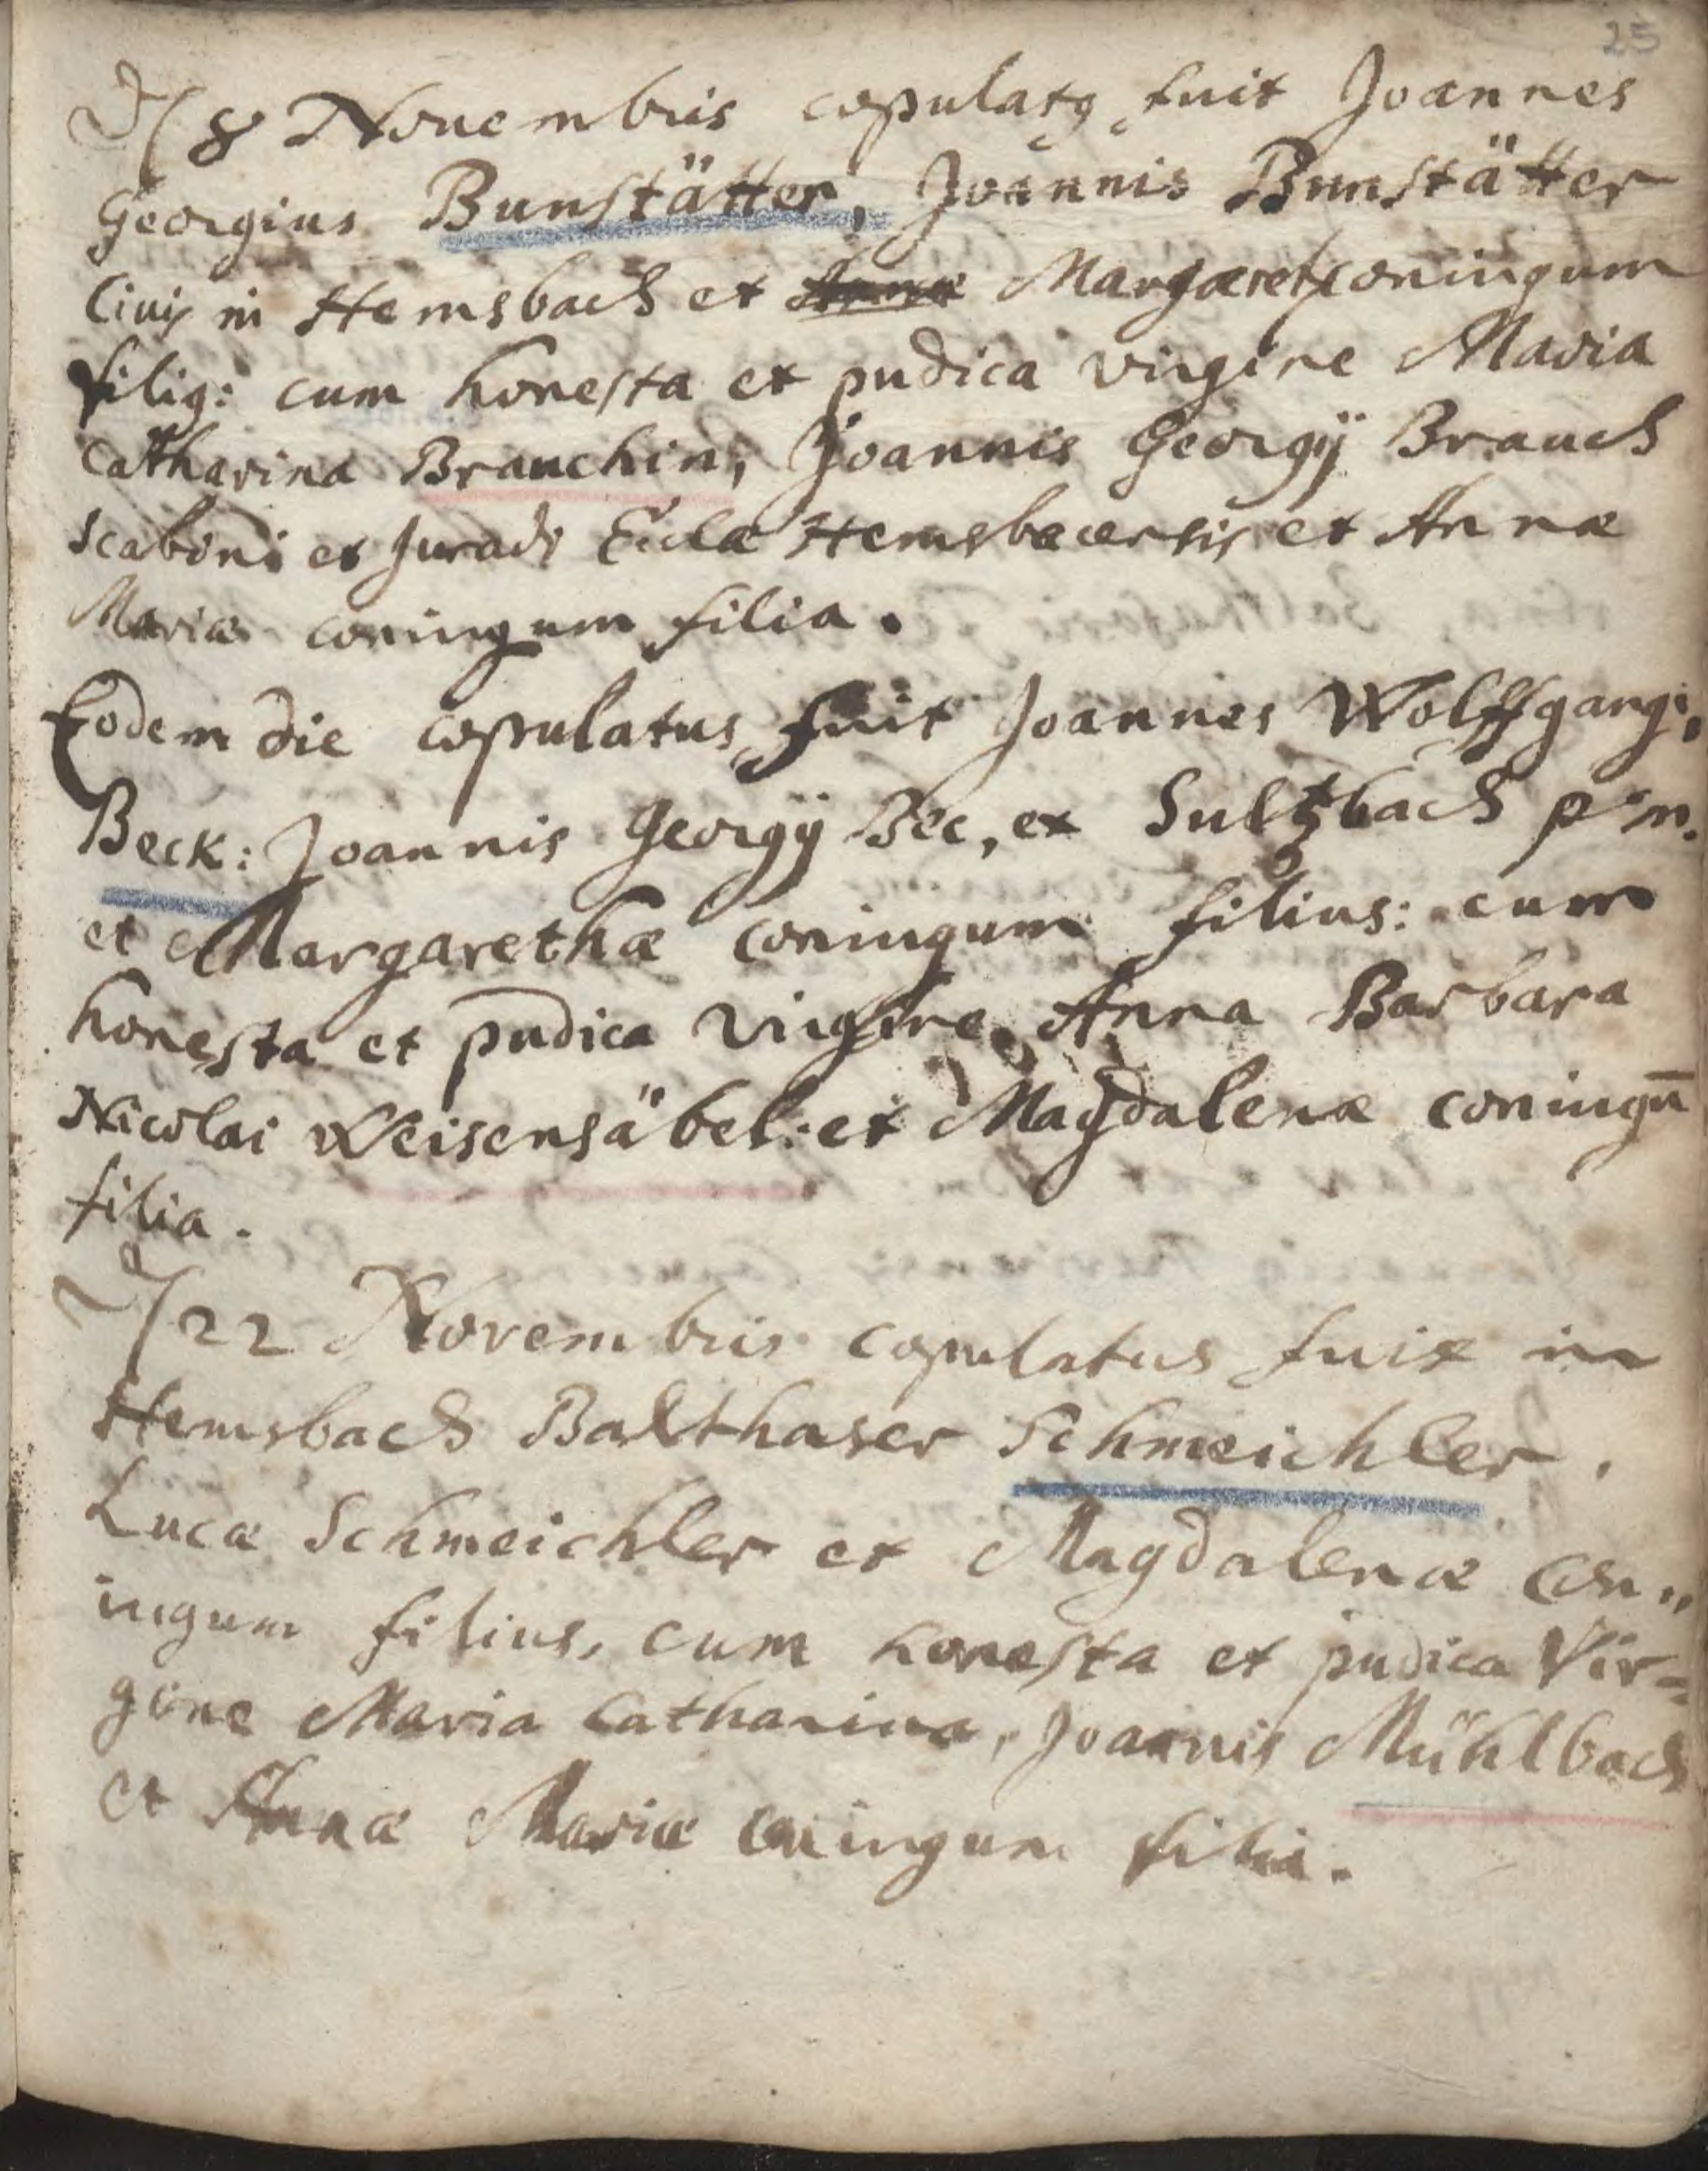 25
8 Novembris copulatg fuit Joannes
Georgius Bunstätter, Joannis Bunstätter
Civis in Hemsbach et Margaretæ coniugum
filig: cum honesta et pudica virgine Maria
Catharina Brauchin, Joannis Georgÿ Brauch
Scabini et Jurati Hemsbacensis et Annæ
Mariæ coniugum filia.
Eodem die copulatus fuit Joannes Wolffgang,
Beck: Joannis Georgÿ Bec, ex Sultzbach
et Margarethæ coniugum filius: cum
honesta et pudica virgine, Anna Barbara
Nicolai Weisensäbel: et Magdalenæ coniugū
filia.
22 Novembris copulatus fuit in
Hemsbach Balthaser Schmeichler,
Lucæ Schmeichler et Magdalenæ con„
iugum filius, cum honesta et pudica Vir=
gine Maria Catharina, Joannis Mühlbach
et Annæ Mariæ coniugum filia.